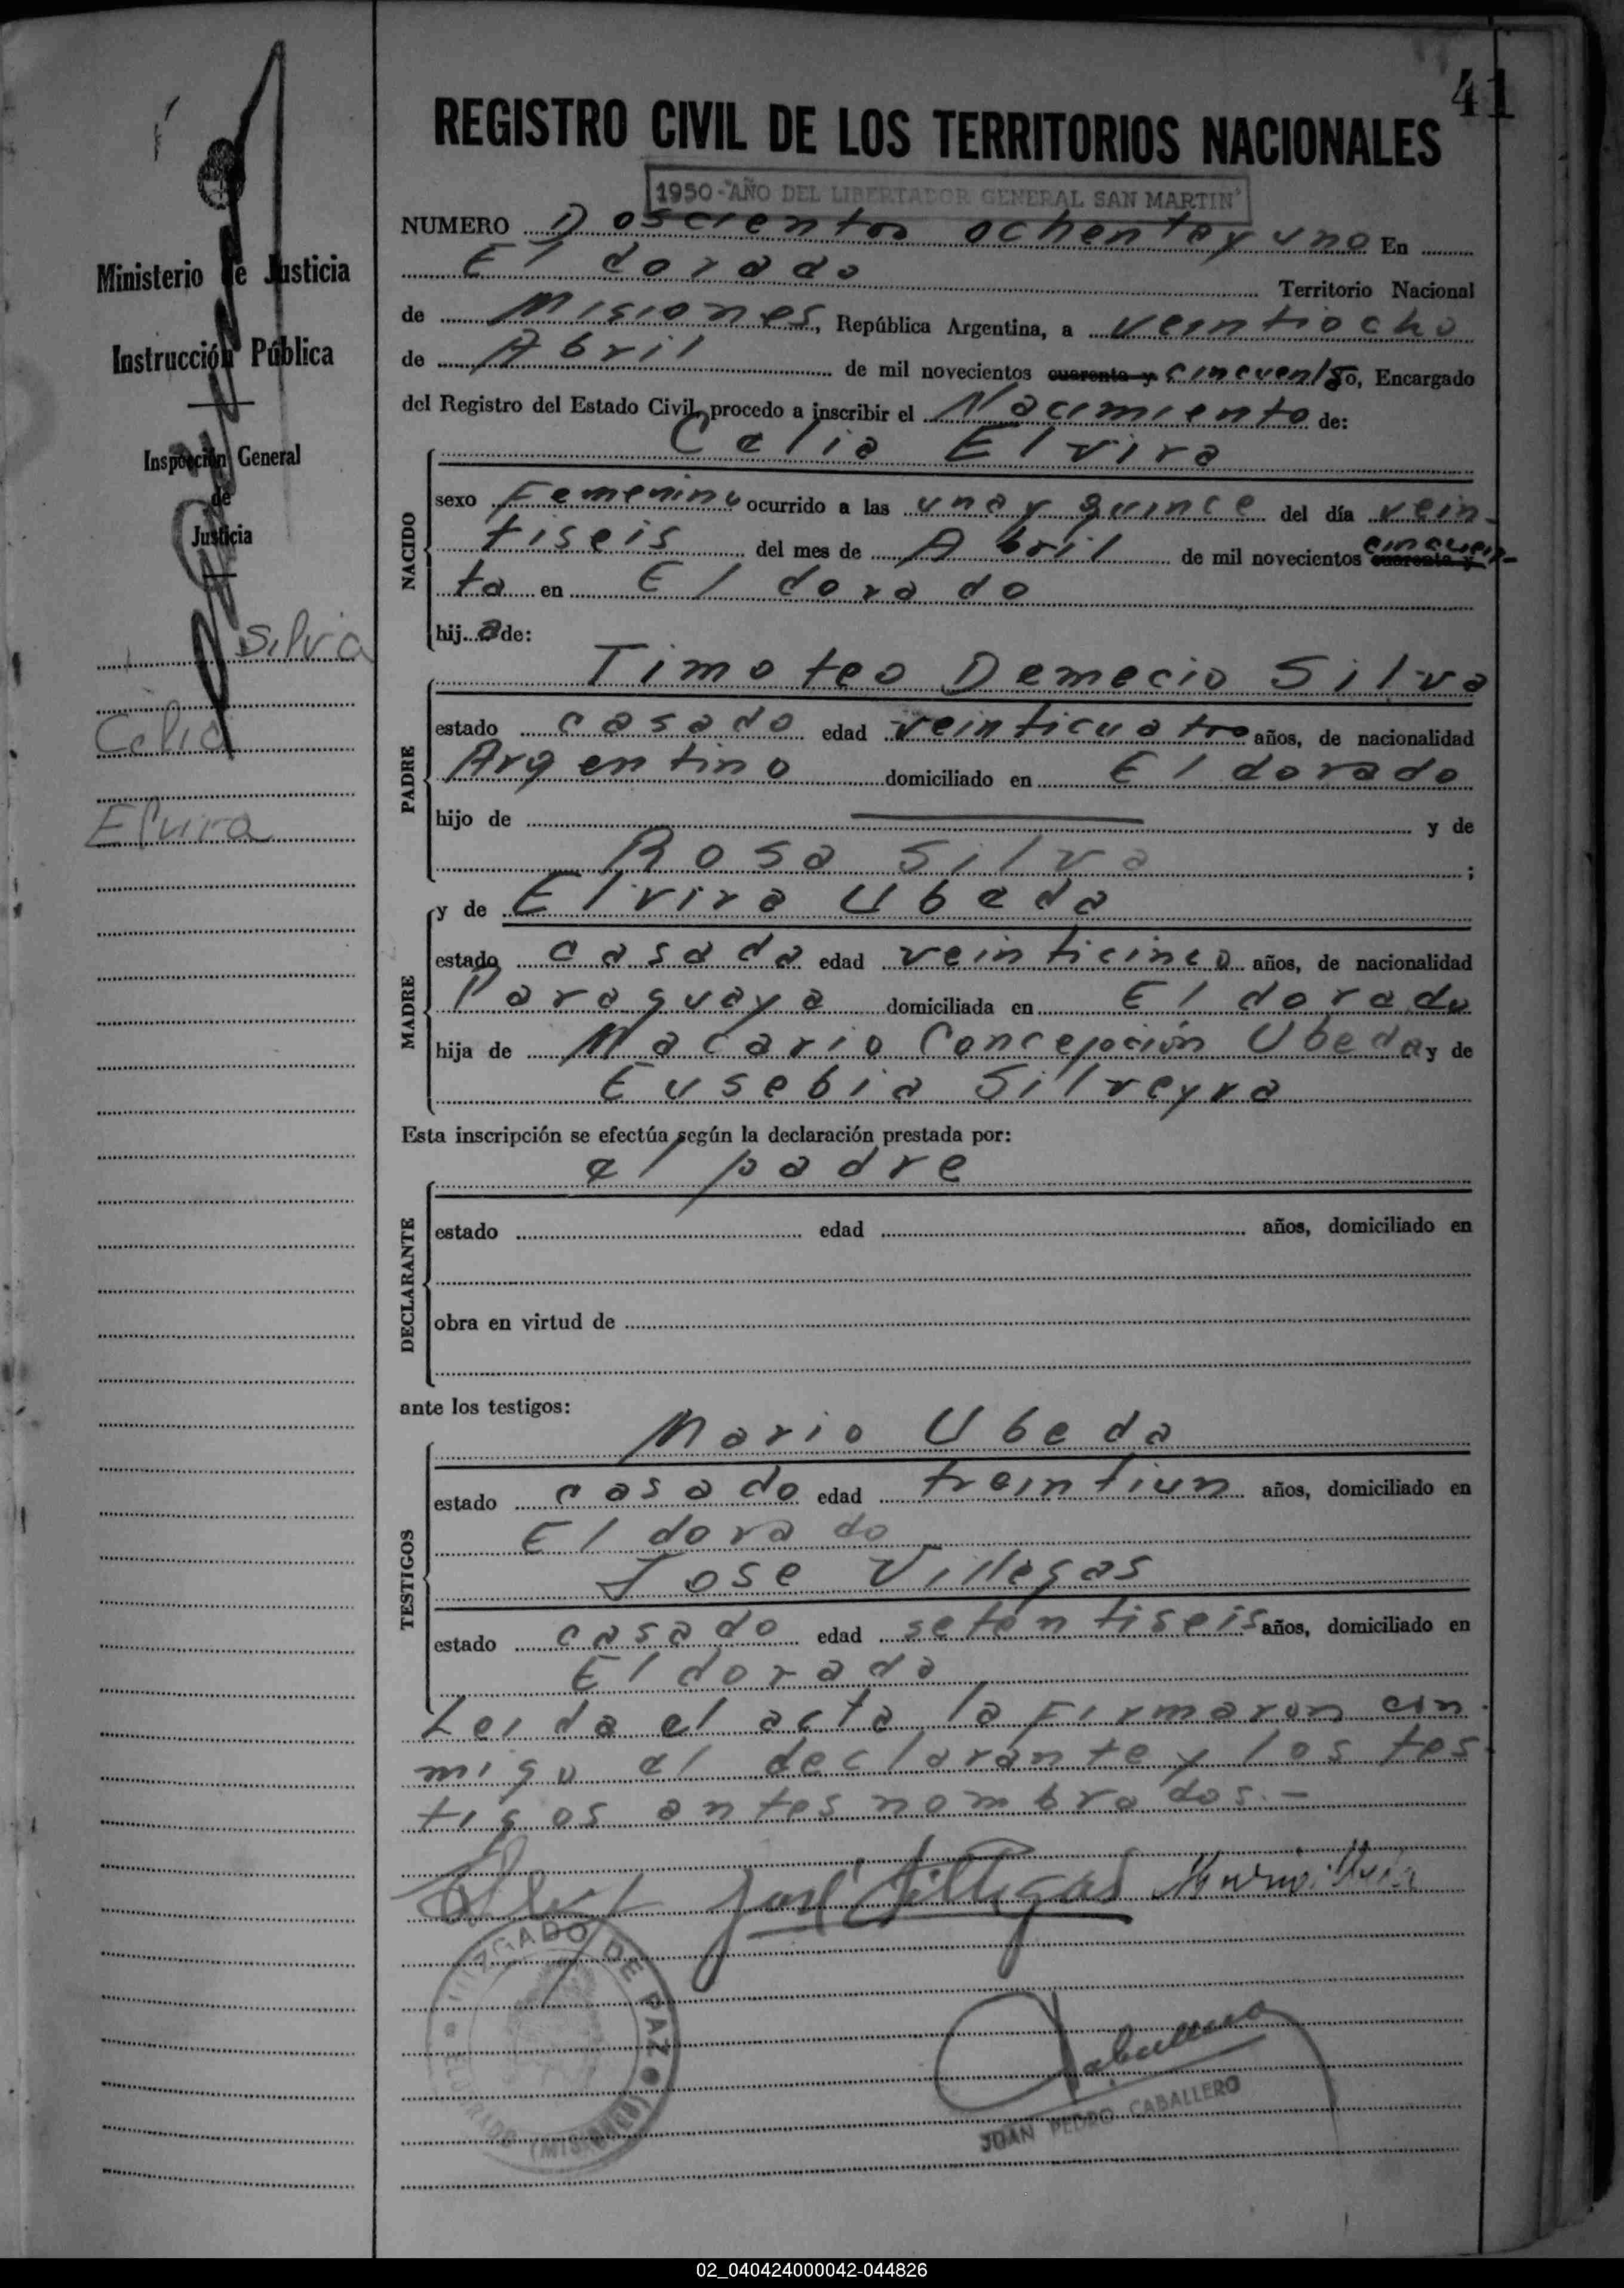 41
REGISTRO CIVIL DE LOS TERRITORIOS NACIONALES
1950-"AÑO DEL LIBERTADOR GENERAL SAN MARTIN"
NUMERO Doscientos ochenta y uno En
El dorado Territorio Nacional
de Misiones, República Argentina, a veintiocho
de Abril de mil novecientos cuarenta y cincuenta yo, Encargado
del Registro del Estado Civil, procedo a inscribir el Nacimiento de:
Celia Elvira
NACIDO
sexo Femenino ocurrido a las una y quince del día vein-
tiseis del mes de Abril de mil novecientos cuarenta y cincuen-
ta en El dorado
hij a de:
Timoteo Demecio Silva
PADRE
estado casado edad veinticuatro años, de nacionalidad
Argentino domiciliado en El dorado
hijo de y de
Rosa Silva ;
y de Elvira Ubeda
MADRE
estado casada edad veinticinco años, de nacionalidad
Paraguaya domiciliada en El dorado
hija de Macario Concepción Ubeda y de
Eusebia Silveyra
Esta inscripción se efectúa según la declaración prestada por:
el padre
DECLARANTE
estado edad años, domiciliado en
obra en virtud de
ante los testigos:
Mario Ubeda
TESTIGOS
estado casado edad treintiun años, domiciliado en
El dorado
Jose Villegas
estado casado edad setentiseis años, domiciliado en
El dorado
Leida el acta la Firmaron con
migo el declarante y los tes-
tigos antes nombrados.-
José Villegas
JUZGADO DE PAZ
ELDORADO (MISIONES)
Caballero
JUAN PEDRO CABALLERO
Ministerio de Justicia
Instrucción Pública
Inspección General
de
Justicia
Silvia
Celia
Elvira
02_040424000042-044826